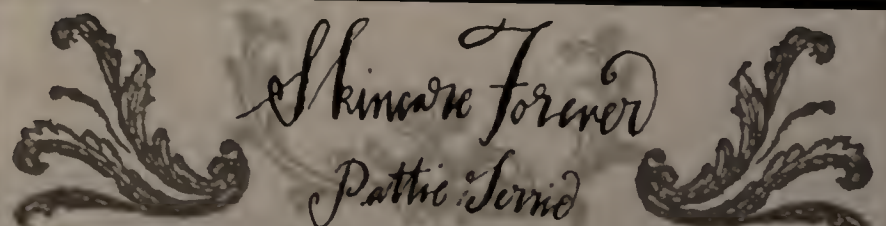 Skincare Forever
Pattie Serrie